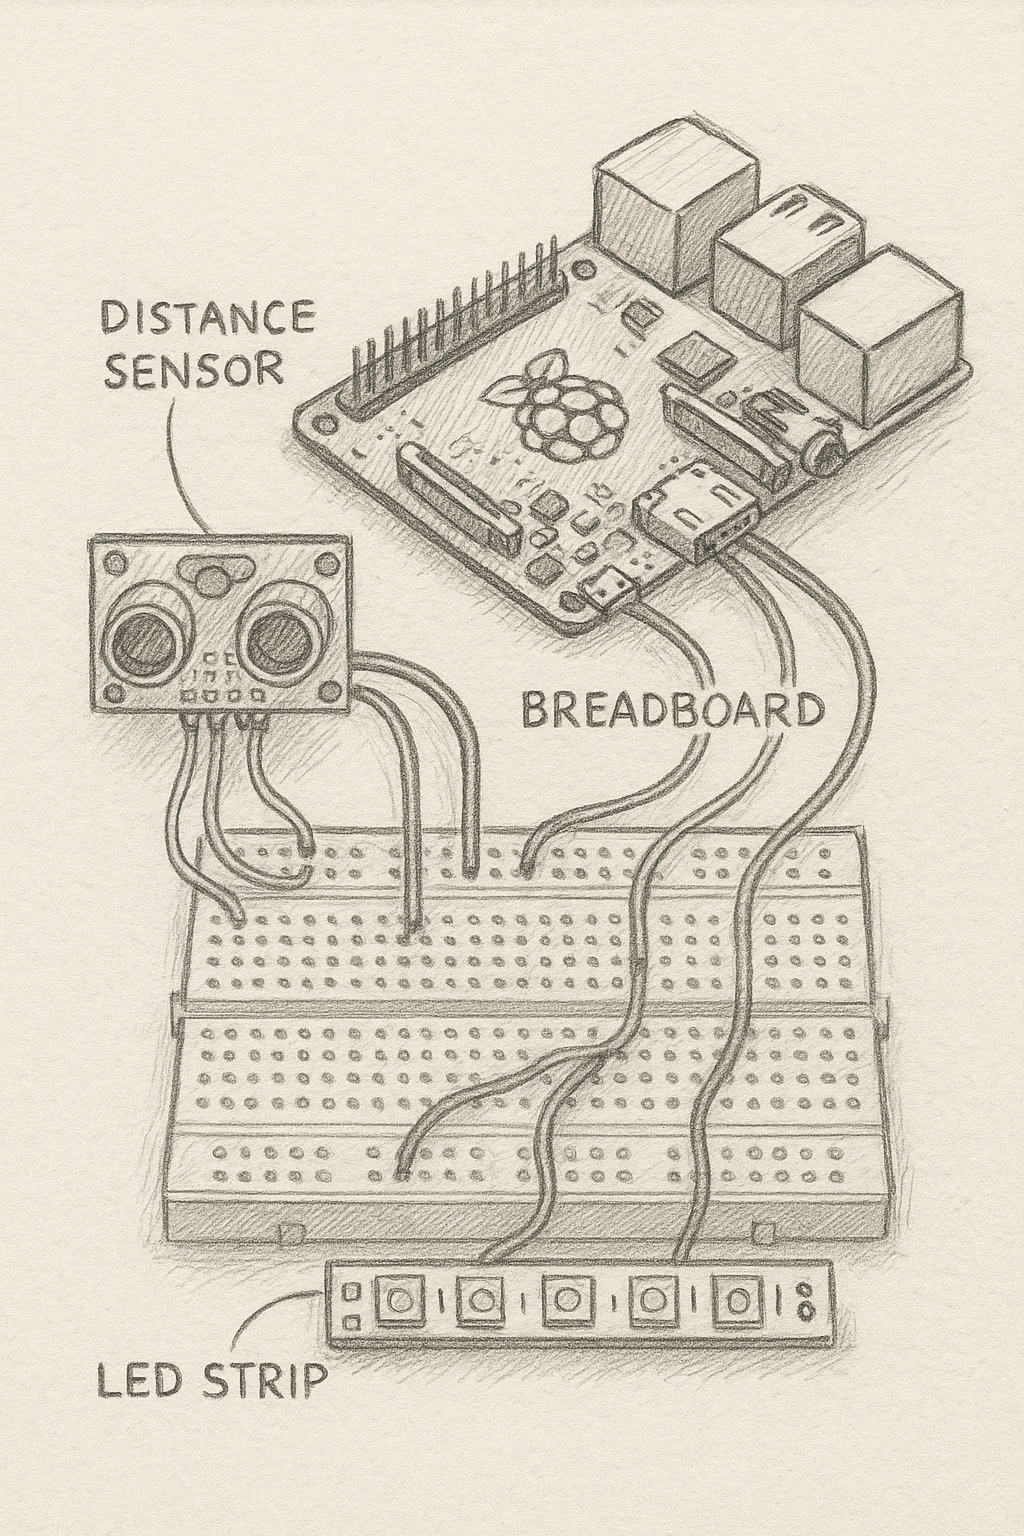 DISTANCE
SENSOR
BREADBOARD
LED STRIP